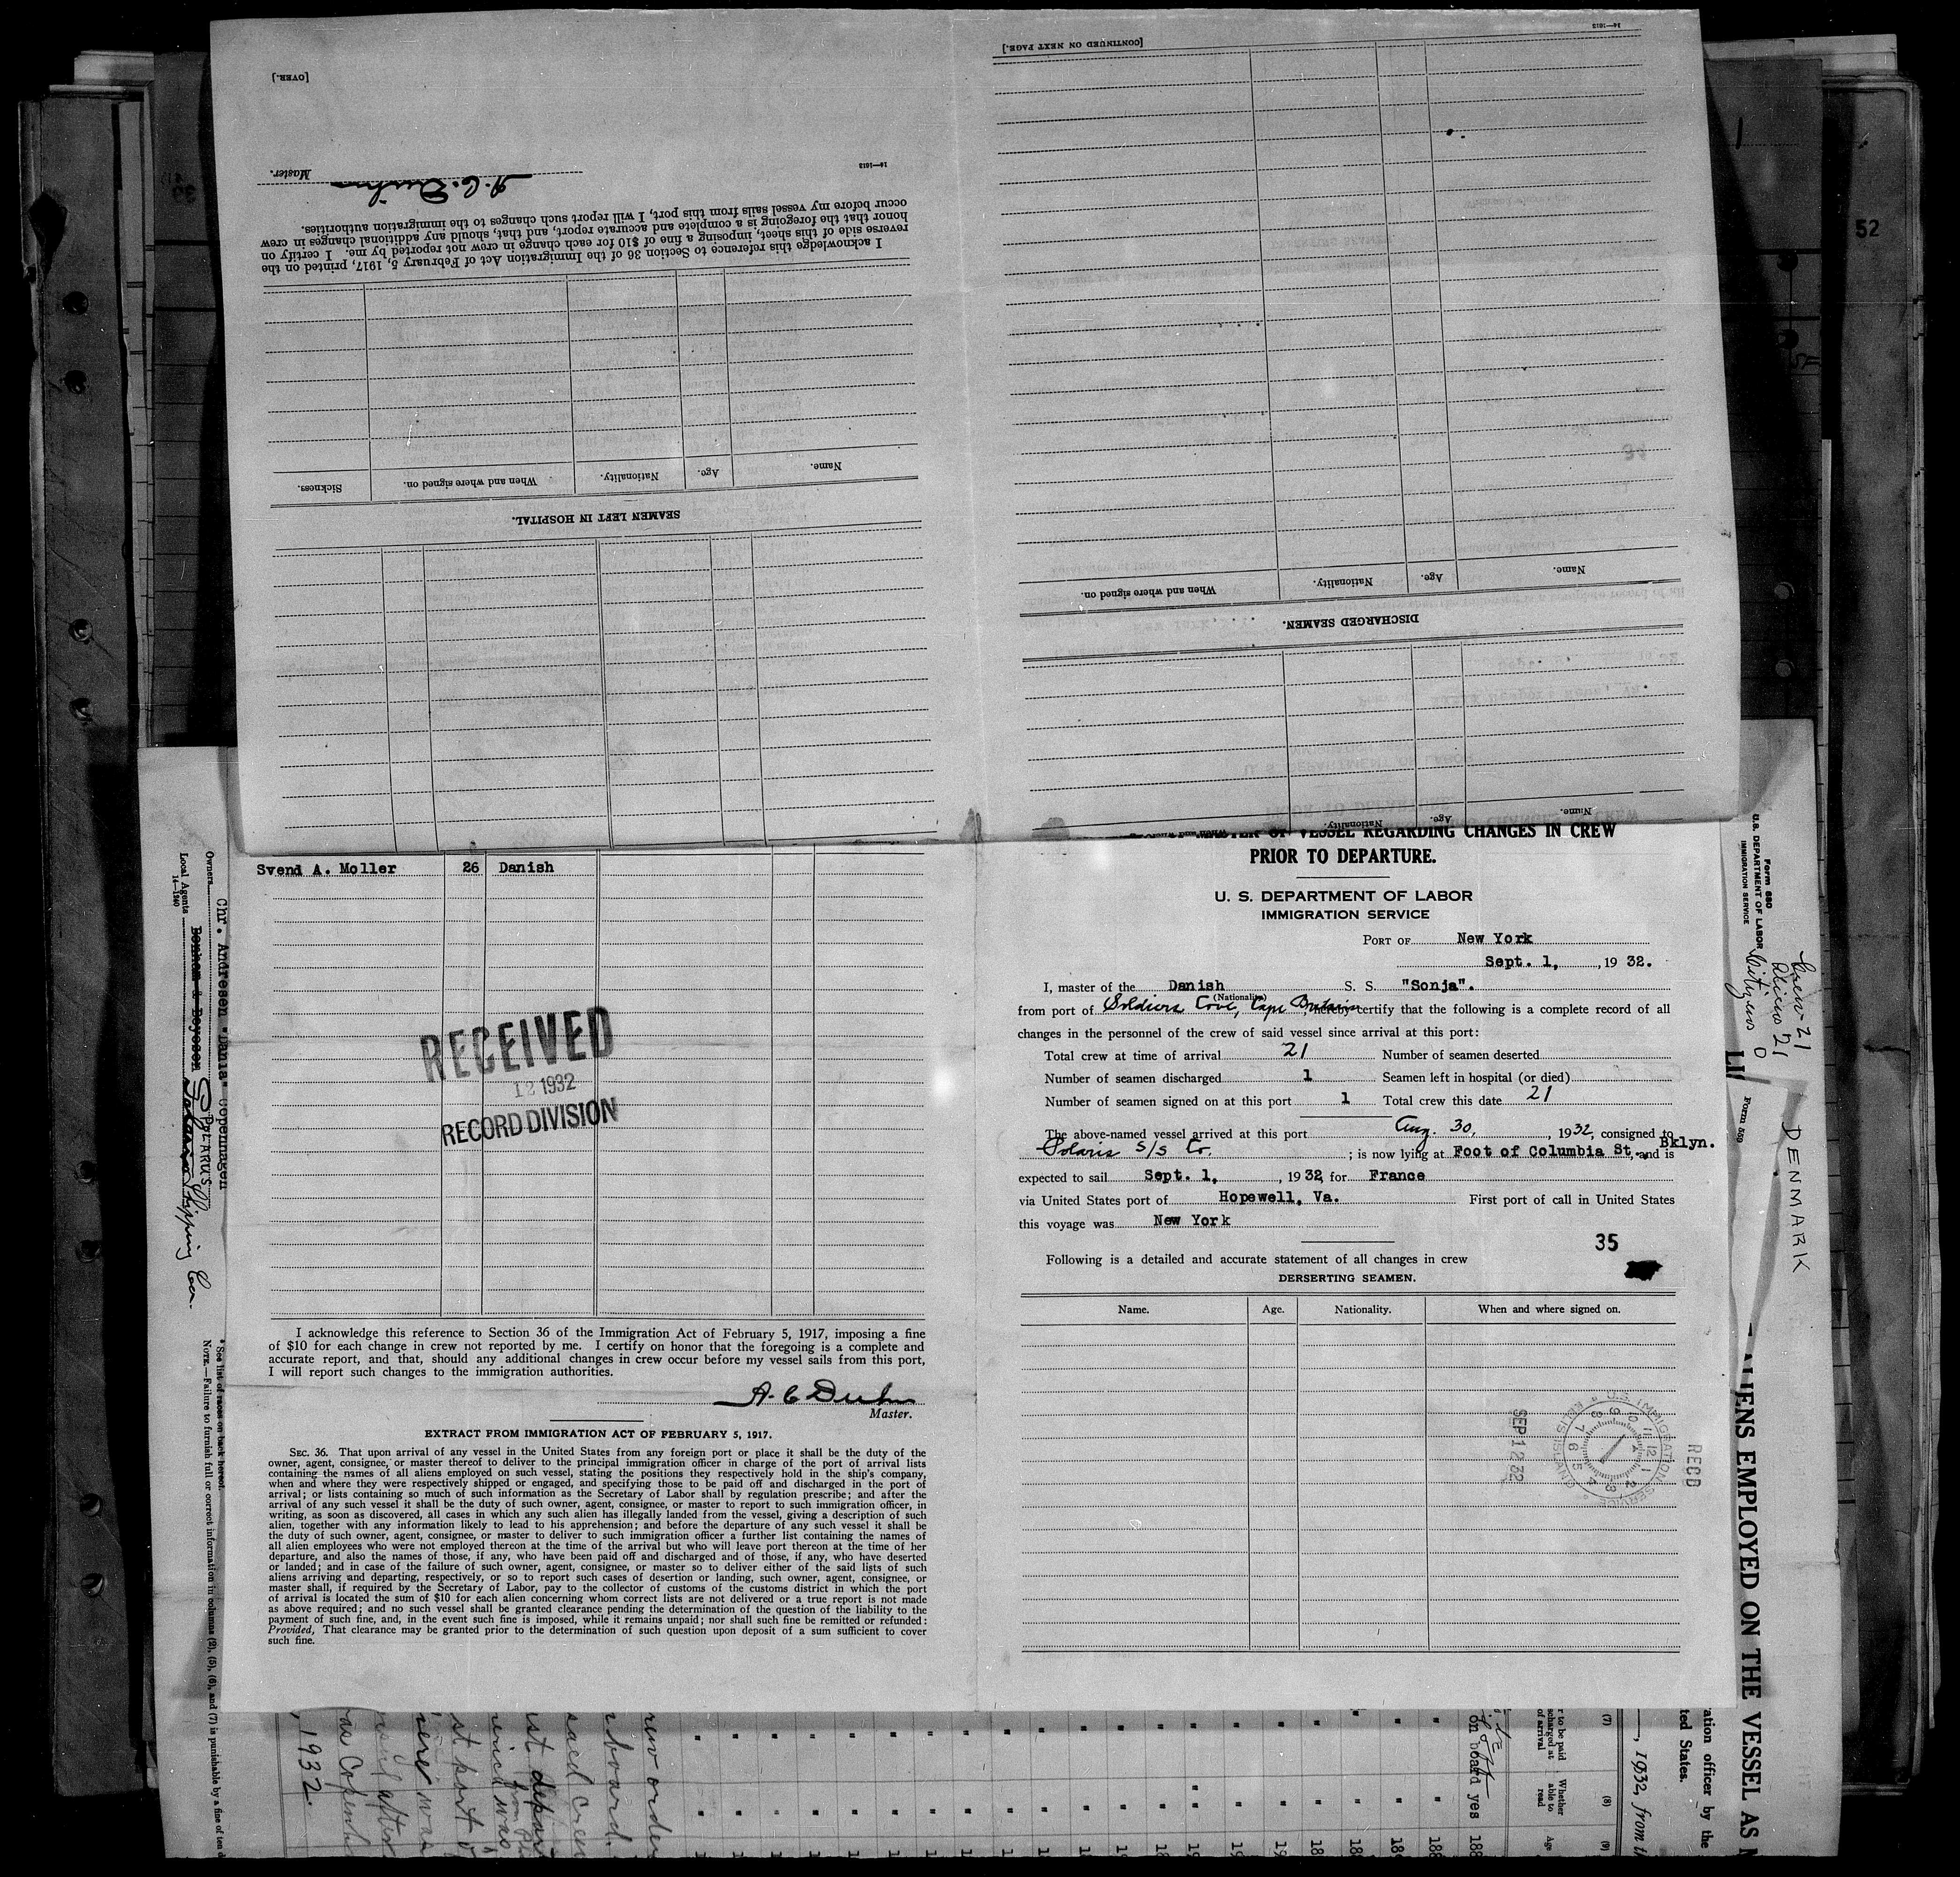 [OVER.]
14—1613
Master.
A. C. Duhn
I acknowledge this reference to Section 36 of the Immigration Act of February 5, 1917, printed on the
reverse side of this sheet, imposing a fine of $10 for each change in crew not reported by me. I certify on
honor that the foregoing is a complete and accurate report, and that, should any additional changes in crew
occur before my vessel sails from this port, I will report such changes to the immigration authorities.
Name. Age. Nationality. When and where signed on. Sickness.
SEAMEN LEFT IN HOSPITAL.
14—1613
[CONTINUED ON NEXT PAGE.]
Name. Age. Nationality. When and where signed on.
DISCHARGED SEAMEN.
Name. Age. Nationality.
52
Svend A. Moller 26 Danish
RECEIVED
12 1932
RECORD DIVISION
I acknowledge this reference to Section 36 of the Immigration Act of February 5, 1917, imposing a fine
of $10 for each change in crew not reported by me. I certify on honor that the foregoing is a complete and
accurate report, and that, should any additional changes in crew occur before my vessel sails from this port,
I will report such changes to the immigration authorities.
A. C Duhn
Master.
EXTRACT FROM IMMIGRATION ACT OF FEBRUARY 5, 1917.
SEC. 36. That upon arrival of any vessel in the United States from any foreign port or place it shall be the duty of the
owner, agent, consignee, or master thereof to deliver to the principal immigration officer in charge of the port of arrival lists
containing the names of all aliens employed on such vessel, stating the positions they respectively hold in the ship's company,
when and where they were respectively shipped or engaged, and specifying those to be paid off and discharged in the port of
arrival; or lists containing so much of such information as the Secretary of Labor shall by regulation prescribe; and after the
arrival of any such vessel it shall be the duty of such owner, agent, consignee, or master to report to such immigration officer, in
writing, as soon as discovered, all cases in which any such alien has illegally landed from the vessel, giving a description of such
alien, together with any information likely to lead to his apprehension; and before the departure of any such vessel it shall be
the duty of such owner, agent, consignee, or master to deliver to such immigration officer a further list containing the names of
all alien employees who were not employed thereon at the time of the arrival but who will leave port thereon at the time of her
departure, and also the names of those, if any, who have been paid off and discharged and of those, if any, who have deserted
or landed; and in case of the failure of such owner, agent, consignee, or master so to deliver either of the said lists of such
aliens arriving and departing, respectively, or so to report such cases of desertion or landing, such owner, agent, consignee, or
master shall, if required by the Secretary of Labor, pay to the collector of customs of the customs district in which the port
of arrival is located the sum of $10 for each alien concerning whom correct lists are not delivered or a true report is not made
as above required; and no such vessel shall be granted clearance pending the determination of the question of the liability to the
payment of such fine, and, in the event such fine is imposed, while it remains unpaid; nor shall such fine be remitted or refunded:
Provided, That clearance may be granted prior to the determination of such question upon deposit of a sum sufficient to cover
such fine.
OF VESSEL REGARDING CHANGES IN CREW
PRIOR TO DEPARTURE.
U. S. DEPARTMENT OF LABOR
IMMIGRATION SERVICE
PORT OF New York
Sept. 1, , 19 32.
I, master of the Danish S. S. "Sonja".
(Nationality)
from port of Soldiers Cove, Cape Bretain hereby certify that the following is a complete record of all
changes in the personnel of the crew of said vessel since arrival at this port:
Total crew at time of arrival 21 Number of seamen deserted
Number of seamen discharged 1 Seamen left in hospital (or died)
Number of seamen signed on at this port 1 Total crew this date 21
The above-named vessel arrived at this port Aug. 30, , 1932, consigned to
Solaris S/S Co. ; is now lying at Foot of Columbia St., Bklyn. and is
expected to sail Sept. 1, , 19 32, for France
via United States port of Hopewell, Va. First port of call in United States
this voyage was New York
35
Following is a detailed and accurate statement of all changes in crew
DERSERTING SEAMEN.
Name. Age. Nationality. When and where signed on.
RECD
U.S. IMMIGRATION SERVICE
SEP 12 32
Owners Chr. Andresen "Dania" Copenhagen
Local Agents Shipping
14—1240
* See list of races on back hereof.
NOTE.—Failure to furnish full or correct information in columns (2), (5), (6), and (7) is punishable by a fine of ten d
Form 680
U.S. DEPARTMENT OF LABOR
IMMIGRATION SERVICE
Crew-21
Aliens 21
Citizens 0
Form 589
DENMARK
LI
IENS EMPLOYED ON THE VESSEL AS M
ration officer by the
ted States.
, 1932, from
(7) (8) (9)
r to be paid
scharged at
of arrival
Whether
able to
read
Age
on board yes 188
, 1932.